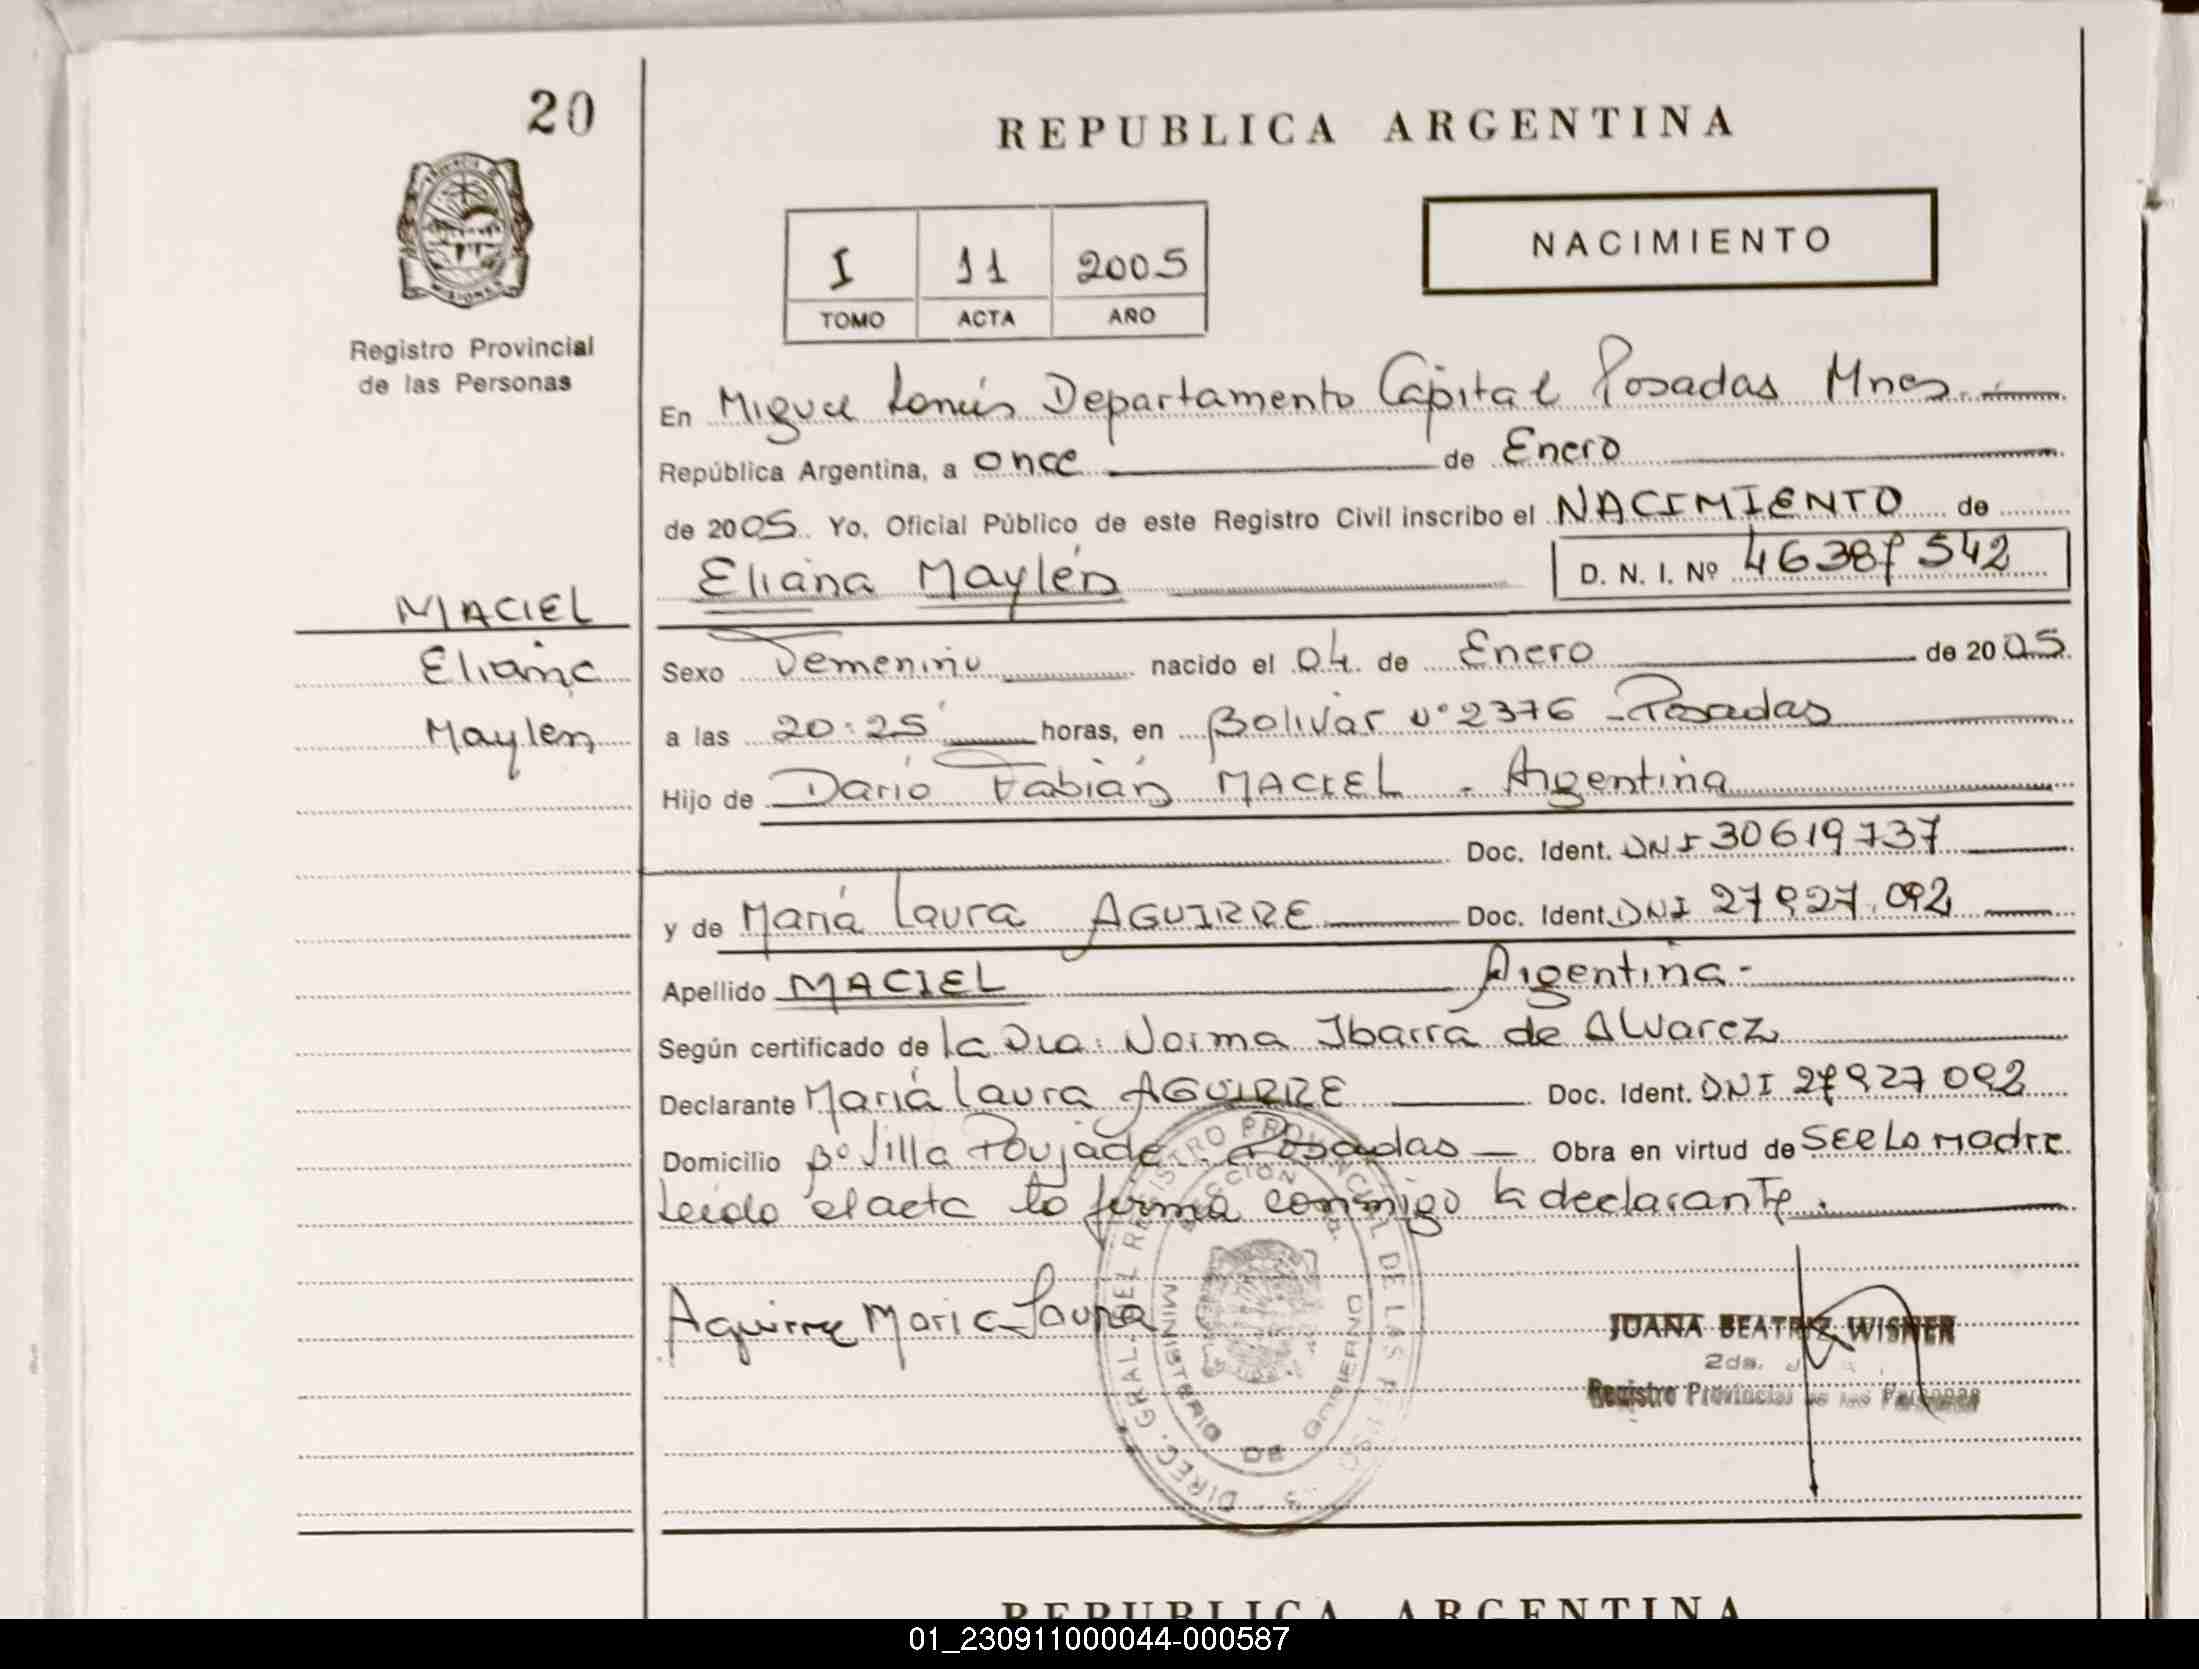 20
REPUBLICA ARGENTINA
NACIMIENTO
I 11 2005
TOMO ACTA AÑO
PROVINCIA DE
MISIONES
Registro Provincial
de las Personas
En Miguel Lanús Departamento Capital Posadas Mnes.
República Argentina, a once de Enero
de 2005. Yo, Oficial Público de este Registro Civil inscribo el NACIMIENTO de
Eliana Maylén D. N. I. Nº
MACIEL
Eliana
Maylen
Sexo Femenino nacido el 04 de Enero de 2005
a las 20:25 horas, en Bolivar nº 2376 - Posadas
Hijo de Darío Fabián MACIEL - Argentina
Doc. Ident. DNI 30619737
y de María Laura AGUIRRE Doc. Ident. DNI 27927.092
Apellido MACIEL Argentina-
Según certificado de la Dra. Norma Ibarra de Alvarez
Declarante María Laura AGUIRRE Doc. Ident. DNI 27927092
Domicilio Bº Villa Poujade - Posadas Obra en virtud de SER LA MADRE
Leída el acta la firma conmigo la declarante.
Aguirre Maria Laura
DIREC. GRAL. DEL REGISTRO PROVINCIAL DE LAS
MINISTERIO DE GOBIERNO
JUANA BEATRIZ WISNER
2da.
Registro Provincial de las Personas
REPUBLICA ARGENTINA
01_230911000044-000587